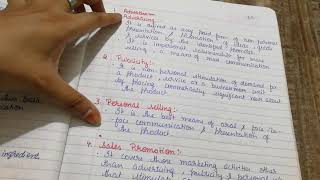 1. Advertising
Advertising
It is defined as any paid form of non personal
presentation & promotion of ideas, goods
& services by the identified sponsor.
It is impersonal salesmanship for mass
selling, a means of mass communication
2. Publicity:-
It is non-personal stimulation of demand for
a product, service or a business unit
by placing commercially significant news about
the product
3. Personal selling:-
It is the best means of oral & face-to-
face communication & presentation of
the product
4. Sales Promotion:-
It covers those marketing activities other
than advertising, publicity & personal
that
ingredient